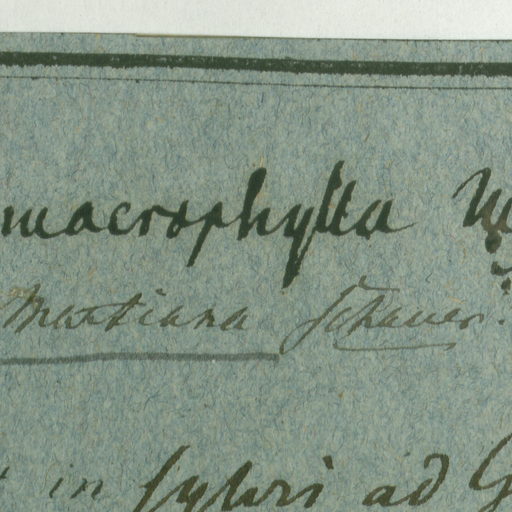 macrophylla
Martiana Schauer.
in sylvis ad